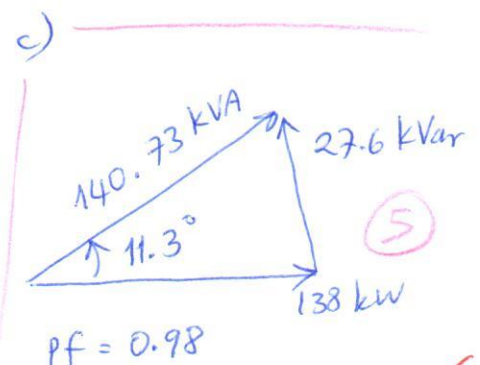 c)
140.73 kVA
27.6 kVar
11.3°
5
138 kw
Pf = 0.98